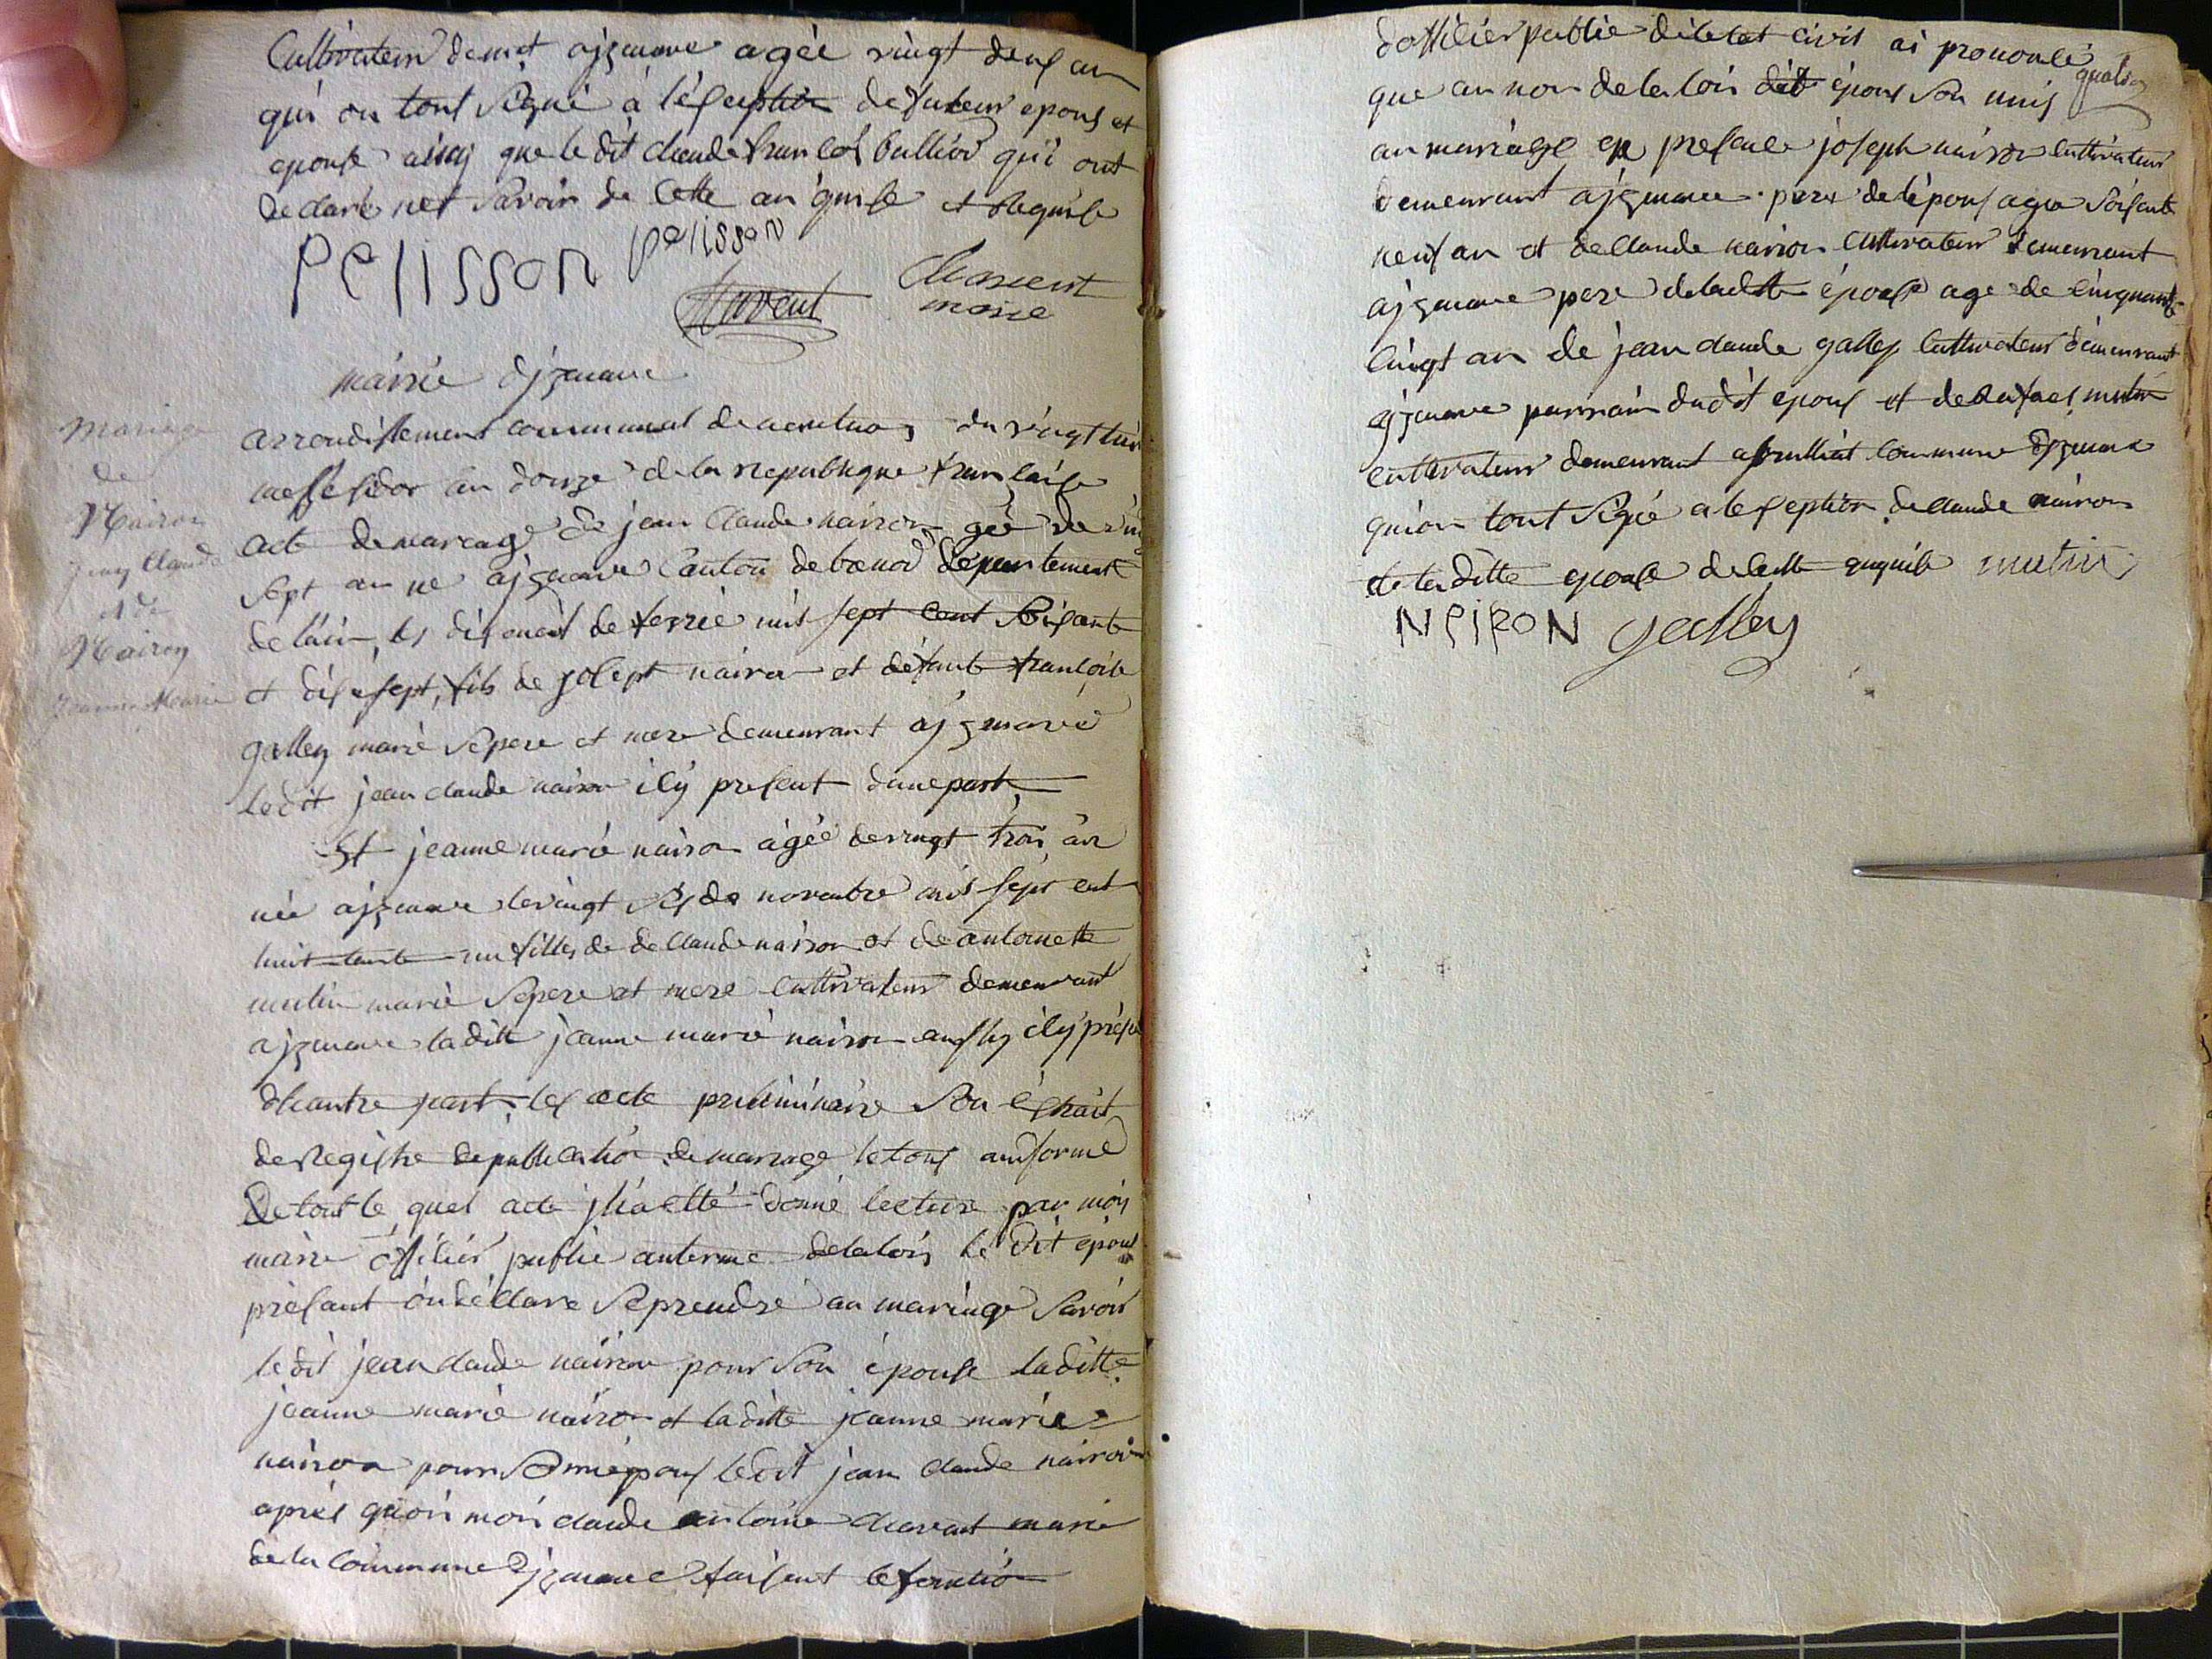 Cultivateur demet ajzenave agée vingt deux an
qui on tout Signé à l'éseption de futeur epous et
epouse ainsy que le dit claude francois bullion qui ont
declaré net Savoir de cette an quise et Requise
PELISSON pelisson
Chavent
Chavent
maire
mairie djzenave
Mariage
de
Nairon
Jean Claude
et de
Nairon
Jeanne Marie
arrondissement communal de nantua du vingt
messidor an douze de la republique francaise
acte de mariage de jean Claude nairon gée de vin
sept an né ajzenave Canton de brenod département
de l'ain, les dis de ferrié mil sept cent Soisante
et disesept, fils de josept nairon et défunte francoise
galley marié Sepere et mere demeurant ajzenave
ledit jean claude nairon icy present dune part,
Et jeanne marie nairon agée devingt trois an
née ajzenave levingt sis de novembre mil sept cent
huit tante un filles de de Claude nairon et de antoinette
mutin marié Sepere et mere Cultivateur demeurant
ajzenave laditte jeanne marie nairon aussy icy présa
dhautre part, les acte preliminaire Son éstrait
de Registre de publication de mariage letous anforme
De tout le quel acte jl à etté donné lecture par moy
maire officier public anterme delalois le dit épous
présant on déclare Seprendre an mariage Savoir
ledit jean claude nairon pour Son épouse laditte
jeanne marie nairon et laditte jeanne marie
nairon pour Son épous ledit jean claude nairon
après quoi moi claude antoine chavent maire
de la Commune djzenave faisant les fonction
dofficier public de letat civil ai prononcé
que au non de la loi dit épous Son unis
an mariage en presence joseph nairon cultivateur
demeurant ajzenave pere de lépous agee Soisante
neuf an et de Claude nairon Cultivateur demeurant
ajzenave pere de laditte épouse age de cinquante
cinqt an de jean claude galley cultivateur demeurant
ajzenave parrain dudit epous et de mutin
cultivateur demeurant commune djzenave
qui on tout Signé a leseption de claude nairon
de laditte epouse de cette anquise mutin
NEIRON galley